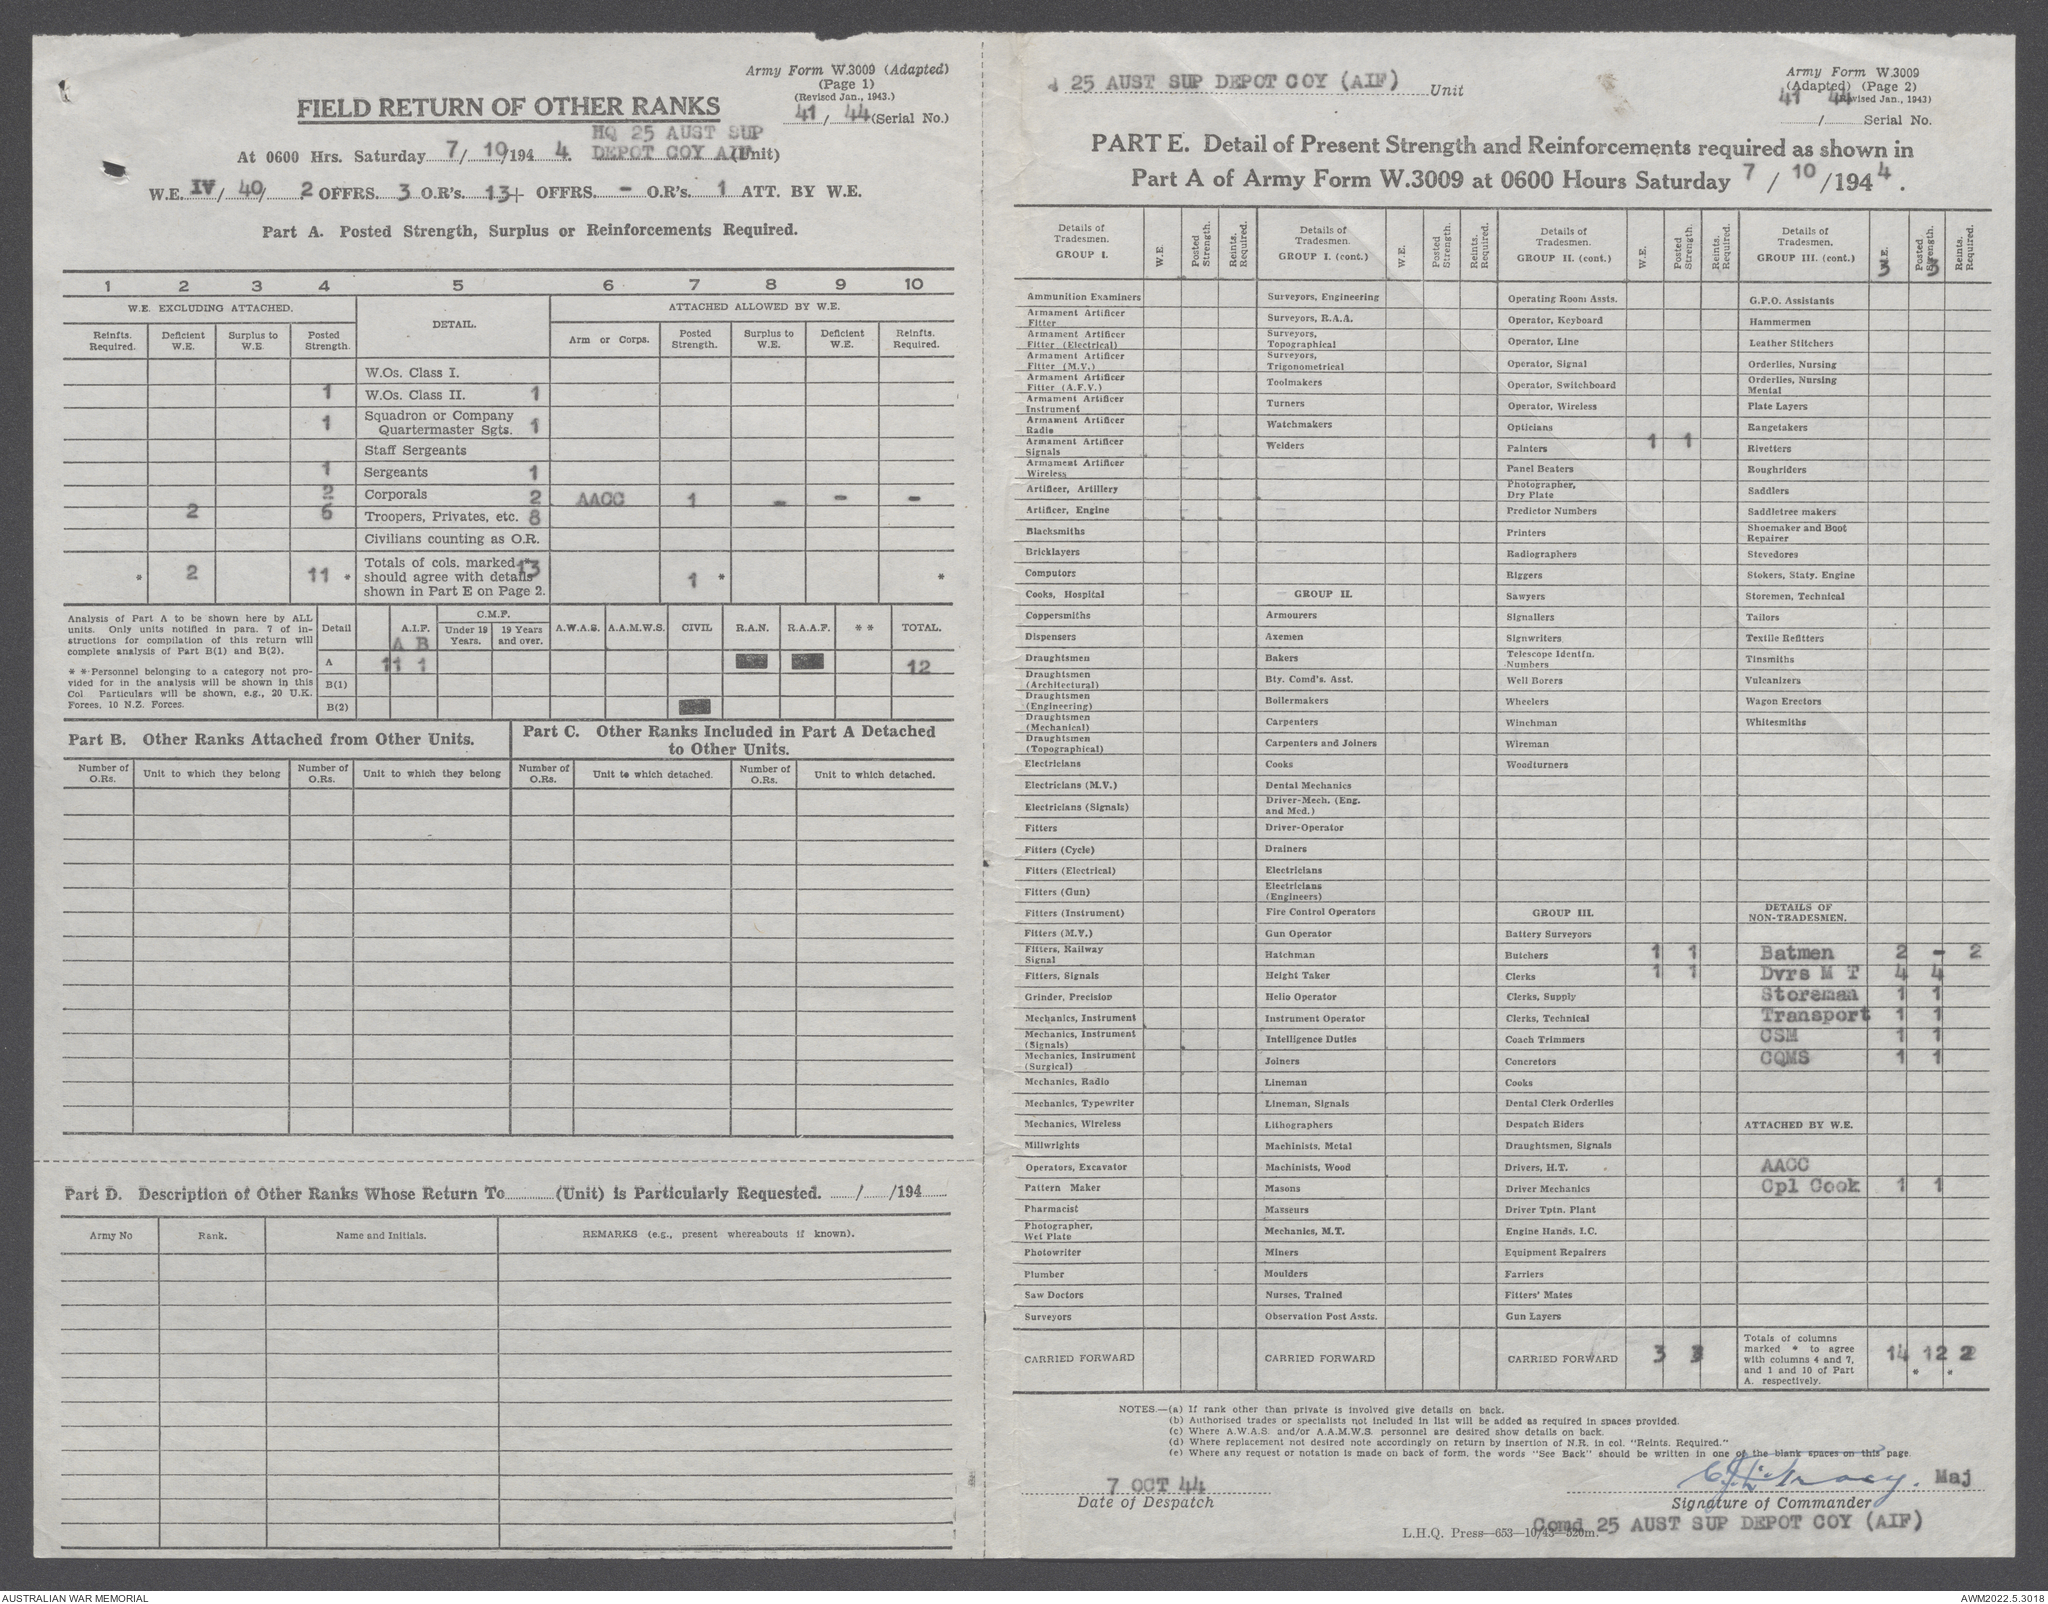 Army Form W.3009 (Adapted)
(Page 1)
(Revised Jan., 1943.)
FIELD RETURN OF OTHER RANKS
41 / 44 (Serial No.)
HQ 25 AUST SUP
At 0600 Hrs. Saturday 7 / 10 /194 4. DEPOT COY AIF (Unit)
W.E. IV / 40 / 2 OFFRS. 3 O.R's. 13 + OFFRS. - O.R's. 1 ATT. BY W.E.
Part A. Posted Strength, Surplus or Reinforcements Required.
1 2 3 4 5 6 7 8 9 10
W.E. EXCLUDING ATTACHED. DETAIL. ATTACHED ALLOWED BY W.E.
Reinfts. Required. Deficient W.E. Surplus to W.E. Posted Strength. Arm or Corps. Posted Strength. Surplus to W.E. Deficient W.E. Reinfts. Required.
W.Os. Class I.
1 W.Os. Class II. 1
1 Squadron or Company Quartermaster Sgts. 1
Staff Sergeants
1 Sergeants 1
2 Corporals 2 AACC 1 - - -
2 6 Troopers, Privates, etc. 8
Civilians counting as O.R.
* 2 11 * Totals of cols. marked * should agree with details shown in Part E on Page 2. 13 1 * *
Analysis of Part A to be shown here by ALL
units. Only units notified in para. 7 of in-
structions for compilation of this return will
complete analysis of Part B(1) and B(2).
* * Personnel belonging to a category not pro-
vided for in the analysis will be shown in this
Col. Particulars will be shown, e.g., 20 U.K.
Forces, 10 N.Z. Forces.
Detail A.I.F. A B C.M.F. Under 19 Years. 19 Years and over. A.W.A.S. A.A.M.W.S. CIVIL R.A.N. R.A.A.F. * * TOTAL.
A 11 1 12
B(1)
B(2)
Part B. Other Ranks Attached from Other Units.
Part C. Other Ranks Included in Part A Detached
to Other Units.
Number of O.Rs. Unit to which they belong Number of O.Rs. Unit to which they belong Number of O.Rs. Unit to which detached. Number of O.Rs. Unit to which detached.
Part D. Description of Other Ranks Whose Return To (Unit) is Particularly Requested. / /194
Army No Rank. Name and Initials. REMARKS (e.g., present whereabouts if known).
25 AUST SUP DEPOT COY (AIF) Unit
Army Form W.3009
(Adapted) (Page 2)
(Revised Jan., 1943)
41 44
/ Serial No.
PART E. Detail of Present Strength and Reinforcements required as shown in
Part A of Army Form W.3009 at 0600 Hours Saturday 7 / 10 /194 4.
Details of Tradesmen. GROUP I. W.E. Posted Strength. Reints. Required.
Ammunition Examiners
Armament Artificer Fitter
Armament Artificer Fitter (Electrical)
Armament Artificer Fitter (M.V.)
Armament Artificer Fitter (A.F.V.)
Armament Artificer Instrument
Armament Artificer Radio
Armament Artificer Signals
Armament Artificer Wireless
Artificer, Artillery
Artificer, Engine
Blacksmiths
Bricklayers
Computors
Cooks, Hospital
Coppersmiths
Dispensers
Draughtsmen
Draughtsmen (Architectural)
Draughtsmen (Engineering)
Draughtsmen (Mechanical)
Draughtsmen (Topographical)
Electricians
Electricians (M.V.)
Electricians (Signals)
Fitters
Fitters (Cycle)
Fitters (Electrical)
Fitters (Gun)
Fitters (Instrument)
Fitters (M.V.)
Fitters, Railway Signal
Fitters, Signals
Grinder, Precision
Mechanics, Instrument
Mechanics, Instrument (Signals)
Mechanics, Instrument (Surgical)
Mechanics, Radio
Mechanics, Typewriter
Mechanics, Wireless
Millwrights
Operators, Excavator
Pattern Maker
Pharmacist
Photographer, Wet Plate
Photowriter
Plumber
Saw Doctors
Surveyors
CARRIED FORWARD
Details of Tradesmen. GROUP I. (cont.) W.E. Posted Strength. Reints. Required.
Surveyors, Engineering
Surveyors, R.A.A.
Surveyors, Topographical
Surveyors, Trigonometrical
Toolmakers
Turners
Watchmakers
Welders
GROUP II.
Armourers
Axemen
Bakers
Bty. Comd's. Asst.
Boilermakers
Carpenters
Carpenters and Joiners
Cooks
Dental Mechanics
Driver-Mech. (Eng. and Med.)
Driver-Operator
Drainers
Electricians
Electricians (Engineers)
Fire Control Operators
Gun Operator
Hatchman
Height Taker
Helio Operator
Instrument Operator
Intelligence Duties
Joiners
Lineman
Lineman, Signals
Lithographers
Machinists, Metal
Machinists, Wood
Masons
Masseurs
Mechanics, M.T.
Miners
Moulders
Nurses, Trained
Observation Post Assts.
CARRIED FORWARD
Details of Tradesmen. GROUP II. (cont.) W.E. Posted Strength. Reints. Required.
Operating Room Assts.
Operator, Keyboard
Operator, Line
Operator, Signal
Operator, Switchboard
Operator, Wireless
Opticians
Painters 1 1
Panel Beaters
Photographer, Dry Plate
Predictor Numbers
Printers
Radiographers
Riggers
Sawyers
Signallers
Signwriters
Telescope Identfn. Numbers
Well Borers
Wheelers
Winchman
Wireman
Woodturners
GROUP III.
Battery Surveyors
Butchers 1 1
Clerks 1 1
Clerks, Supply
Clerks, Technical
Coach Trimmers
Concretors
Cooks
Dental Clerk Orderlies
Despatch Riders
Draughtsmen, Signals
Drivers, H.T.
Driver Mechanics
Driver Tptn. Plant
Engine Hands, I.C.
Equipment Repairers
Farriers
Fitters' Mates
Gun Layers
CARRIED FORWARD 3 3
Details of Tradesmen. GROUP III. (cont.) W.E. 3 Posted Strength. 3 Reints. Required.
G.P.O. Assistants
Hammermen
Leather Stitchers
Orderlies, Nursing
Orderlies, Nursing Mental
Plate Layers
Rangetakers
Rivetters
Roughriders
Saddlers
Saddletree makers
Shoemaker and Boot Repairer
Stevedores
Stokers, Staty. Engine
Storemen, Technical
Tailors
Textile Refitters
Tinsmiths
Vulcanizers
Wagon Erectors
Whitesmiths
DETAILS OF NON-TRADESMEN.
Batmen 2 - 2
Dvrs M T 4 4
Storeman 1 1
Transport 1 1
CSM 1 1
CQMS 1 1
ATTACHED BY W.E.
AACC
Cpl Cook 1 1
Totals of columns marked * to agree with columns 4 and 7, and 1 and 10 of Part A. respectively. 14 12 2
* *
NOTES.—(a) If rank other than private is involved give details on back.
(b) Authorised trades or specialists not included in list will be added as required in spaces provided.
(c) Where A.W.A.S. and/or A.A.M.W.S. personnel are desired show details on back.
(d) Where replacement not desired note accordingly on return by insertion of N.R. in col. "Reints. Required."
(e) Where any request or notation is made on back of form, the words "See Back" should be written in one of the blank spaces on this page.
7 OCT 44
Date of Despatch
Maj
Signature of Commander
Comd 25 AUST SUP DEPOT COY (AIF)
L.H.Q. Press—653—10/43—520m.
AUSTRALIAN WAR MEMORIAL
AWM2022.5.3018